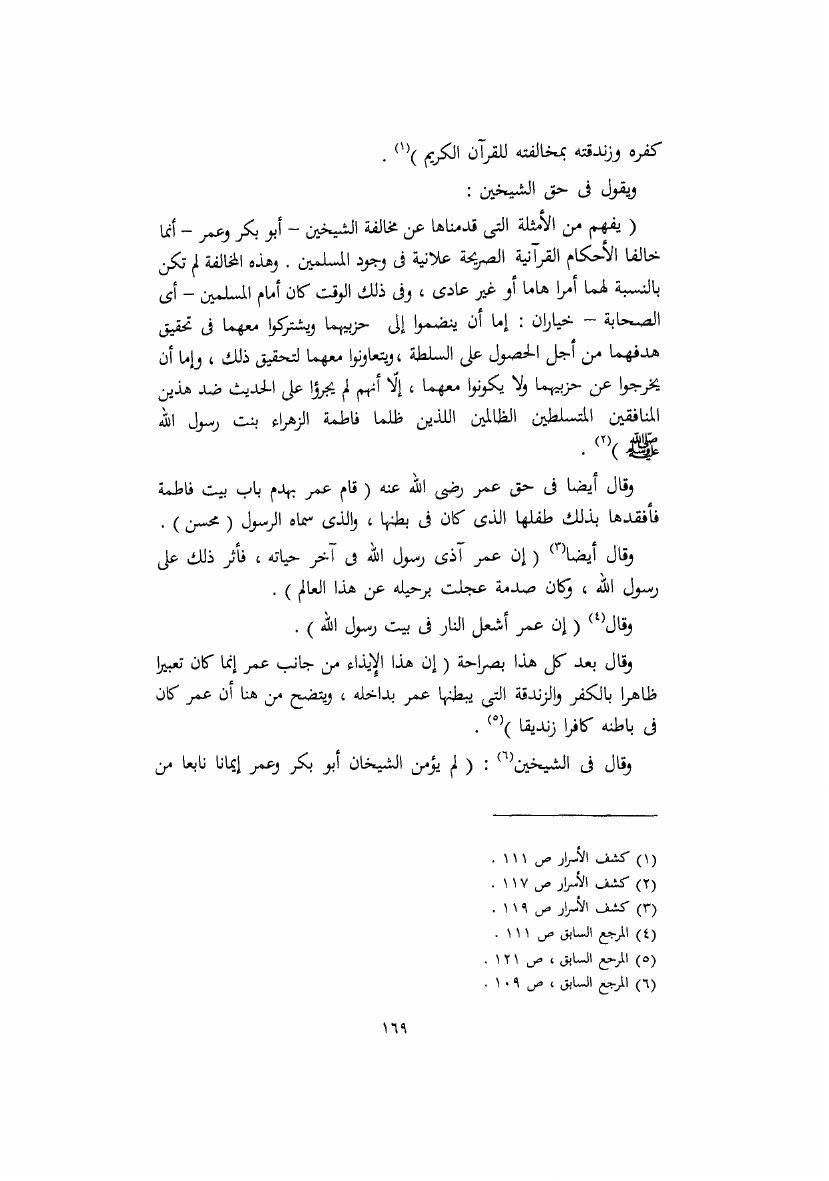 كفره وزندقته بمخالفته للقرآن الكريم )(١) .
ويقول فى حق الشيخين :
( يفهم من الأمثلة التى قدمناها عن مخالفة الشيخين – أبو بكر وعمر – أنما
خالفا الأحكام القرآنية الصريحة علانية فى وجود المسلمين . وهذه المخالفة لم تكن
بالنسبة لهما أمرا هاما أو غير عادى ، وفى ذلك الوقت كان أمام المسلمين – أى
الصحابة – خياران : إما أن ينضموا إلى حزبيهما ويشتركوا معهما فى تحقيق
هدفهما من أجل الحصول على السلطة ، ويتعاونوا معهما لتحقيق ذلك ، وإما أن
يخرجوا عن حزبيهما ولا يكونوا معهما ، إلّا أنهم لم يجرؤا على الحديث ضد هذين
المنافقين المتسلطين الظالمين اللذين ظلما فاطمة الزهراء بنت رسول الله
ﷺ )(٢) .
وقال أيضا فى حق عمر رضى الله عنه ( قام عمر بهدم باب بيت فاطمة
فأفقدها بذلك طفلها الذى كان فى بطنها ، والذى سماه الرسول ( محسن ) .
وقال أيضا(٣) ( إن عمر آذى رسول الله فى آخر حياته ، فأثر ذلك على
رسول الله ، وكان صدمة عجلت برحيله عن هذا العالم ) .
وقال(٤) ( إن عمر أشعل النار فى بيت رسول الله ) .
وقال بعد كل هذا بصراحة ( إن هذا الإيذاء من جانب عمر إنما كان تعبيرا
ظاهرا بالكفر والزندقة التى يبطنها عمر بداخله ، ويتضح من هنا أن عمر كان
فى باطنه كافرا زنديقا )(٥) .
وقال فى الشيخين(٦) : ( لم يؤمن الشيخان أبو بكر وعمر إيمانا نابعا من
(١) كشف الأسرار ص ١١١ .
(٢) كشف الأسرار ص ١١٧ .
(٣) كشف الأسرار ص ١١٩ .
(٤) المرجع السابق ص ١١١ .
(٥) المرجع السابق ، ص ١٢١ .
(٦) المرجع السابق ، ص ١٠٩ .
١٦٩